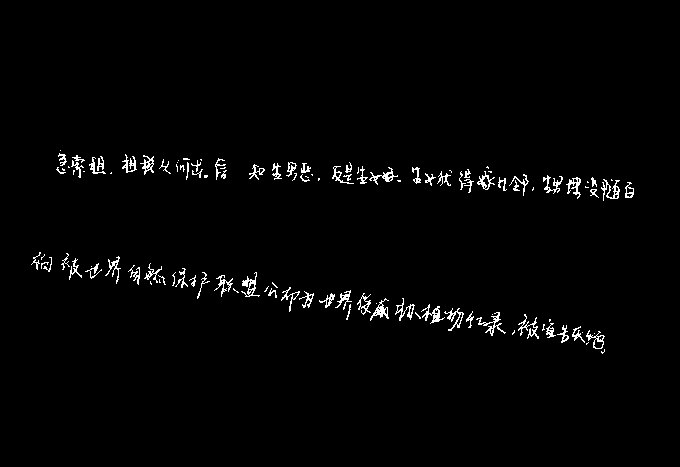 急索租，租税从何出。信 知生男恶，反是生女好。生女犹得嫁比邻，生男埋没随百
柏被世界自然保护联盟公布为世界受威胁植物红录，被宣告灭绝